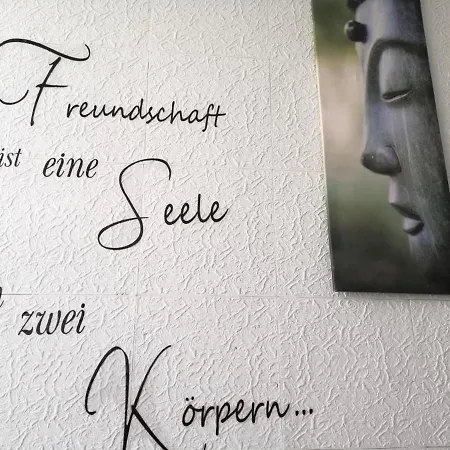 Freundschaft
ist eine
Seele
zwei
Körpern...